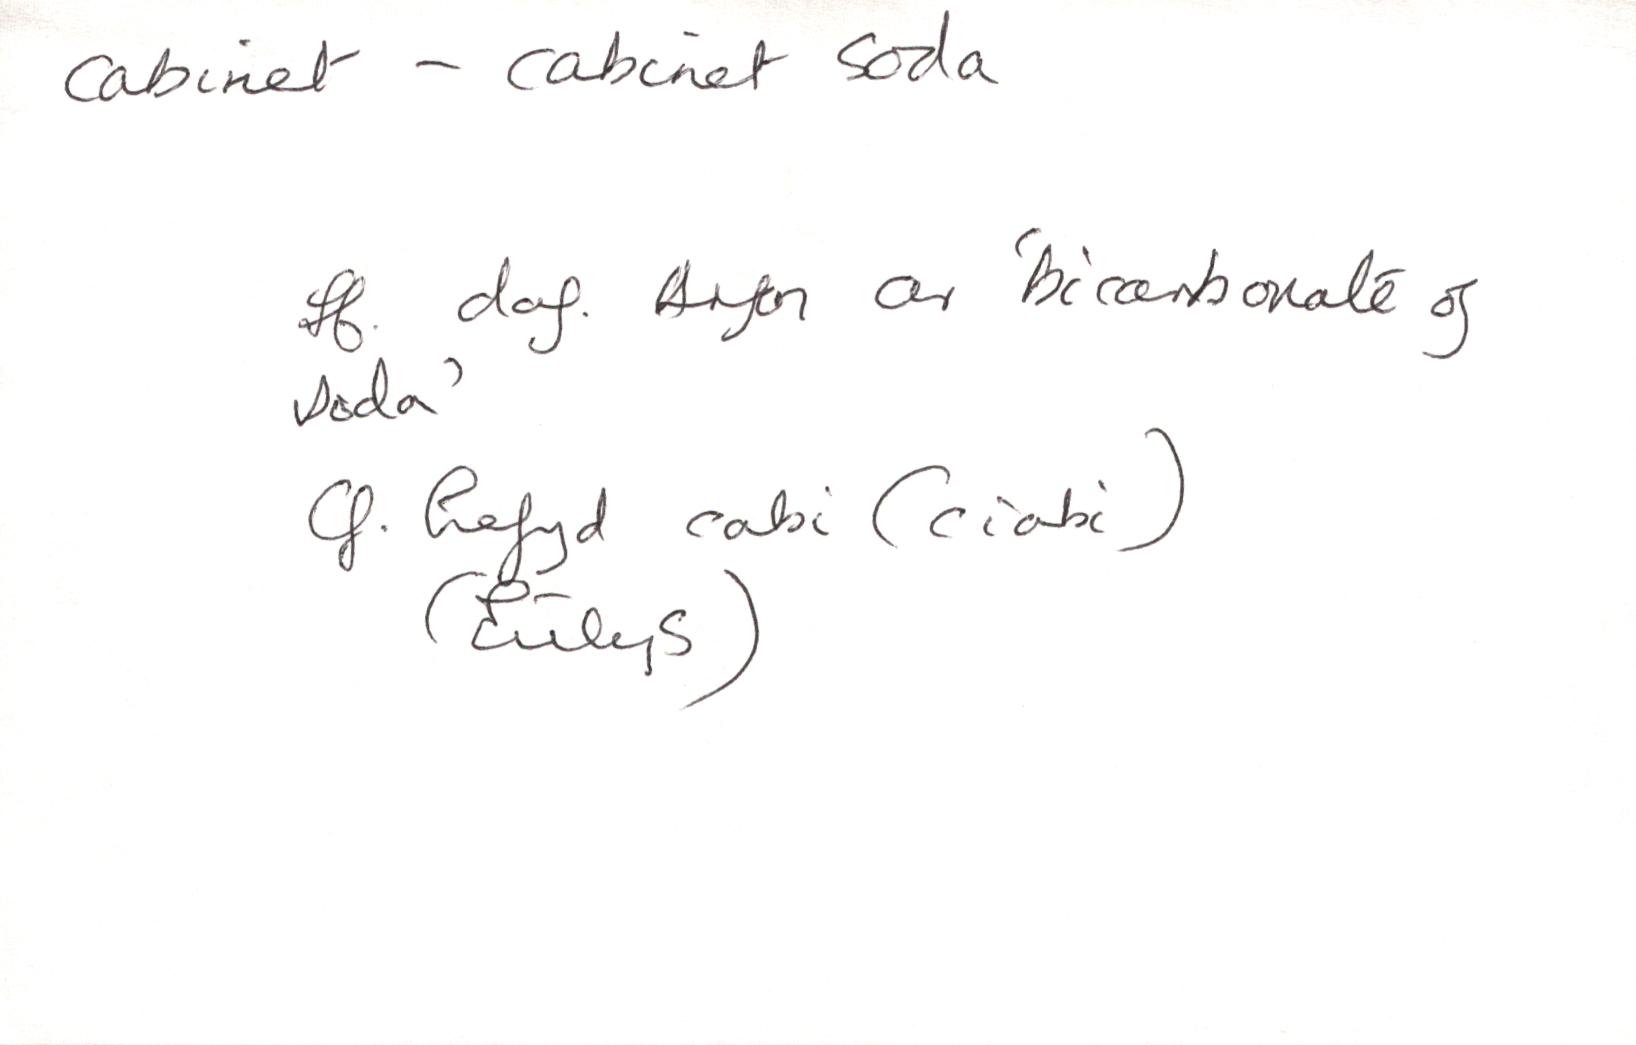 cabinet - cabinet soda
ff. daf. Arfon ar 'bicarbonate of
soda'
Cf. hefyd cabi (ciabi)
(Eirlys)